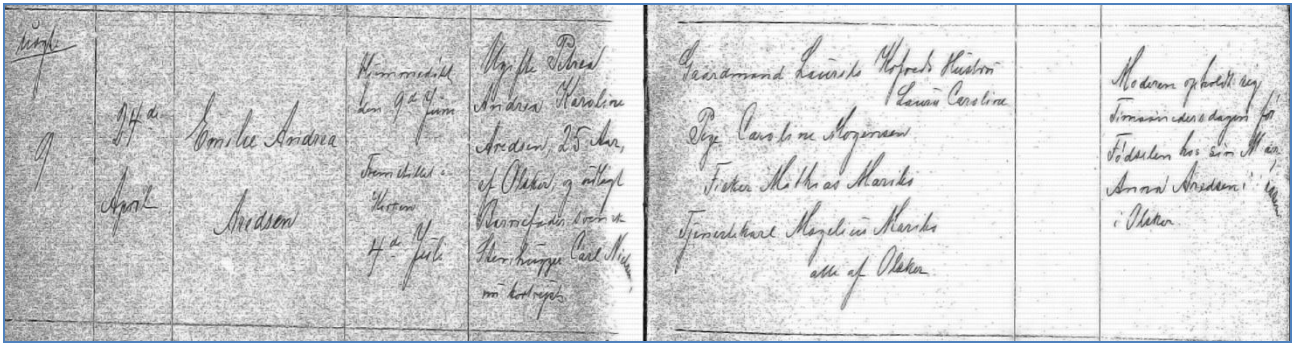 Uægt.
9
24de
April
Emilie Andrea
Aredsen
Hjemmedøbt
den 9de Juni
Fremstillet i
Kirken
4de Juli
Ugifte Petrea
Andrea Karoline
Aredsen, 25 Aar,
af Olsker, og udlagt
Barnefader svensk
Stenhugger Carl
nu bortrejst.
Gaardmand Laurids Kofoeds Hustru
Laura Caroline
Pige Caroline Mogensen
Fisker Mathias Marker
Tjenestekarl Mogelius Marker
alle af Olsker
Moderen opholdt sig
Timaanedersdagen før
Fødselen hos sin
Anora Aredsen
i Olsker